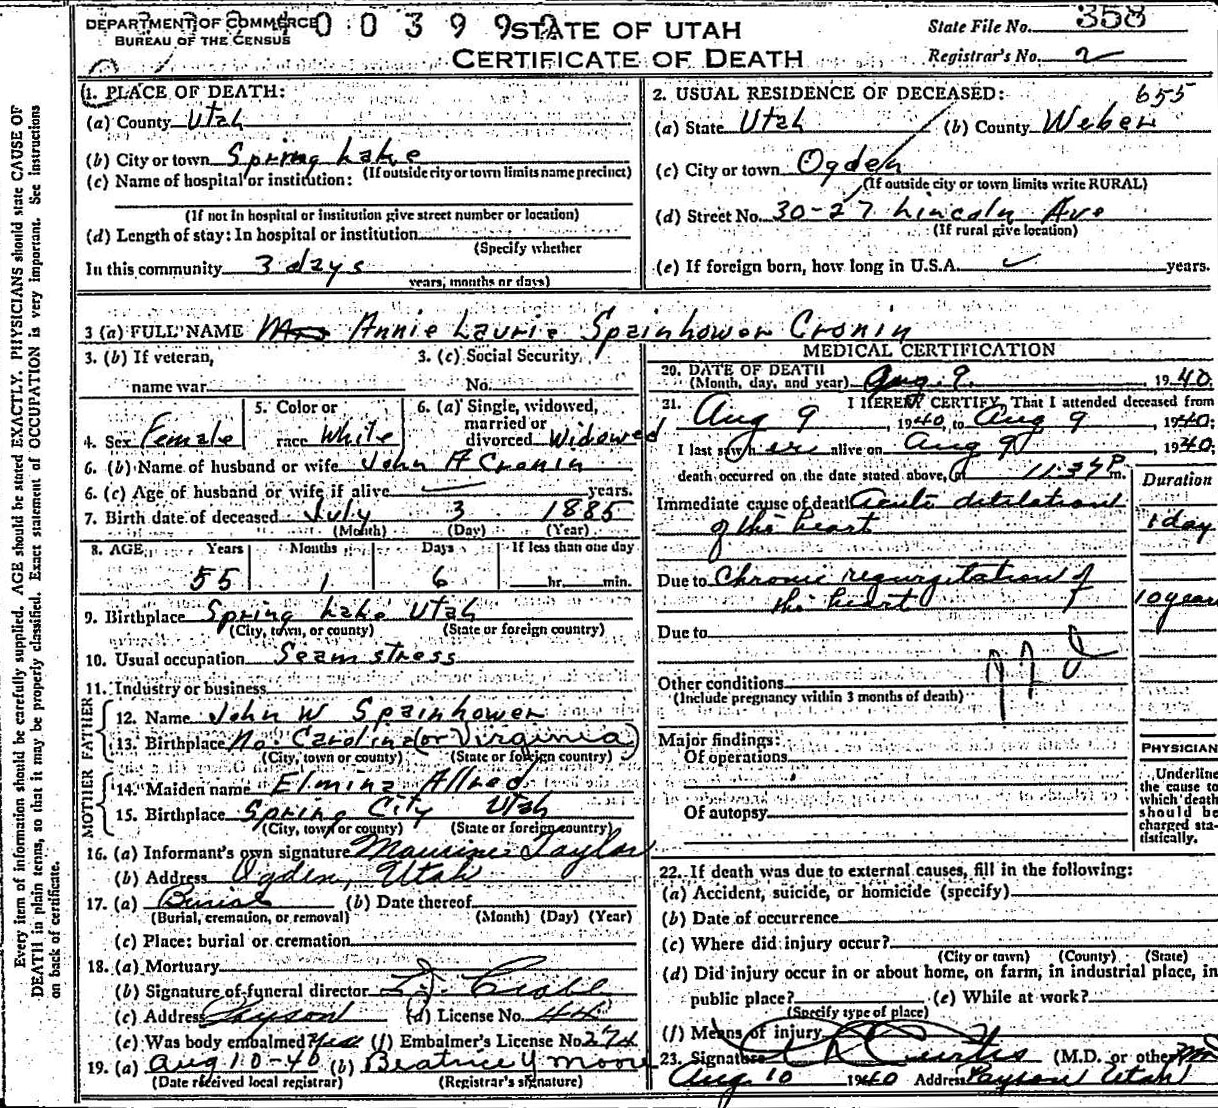 DEPARTMENT OF COMMERCE
BUREAU OF THE CENSUS
0 0 3 9 9
STATE OF UTAH
CERTIFICATE OF DEATH
State File No. 358
Registrar's No. 2
Every item of information should be carefully supplied. AGE should be stated EXACTLY. PHYSICIANS should state CAUSE OF
DEATH in plain terms, so that it may be properly classified. Exact statement of OCCUPATION is very important. See instructions
on back of certificate.
1. PLACE OF DEATH:
(a) County Utah
(b) City or town Spring Lake
(If outside city or town limits name precinct)
(c) Name of hospital or institution:
(If not in hospital or institution give street number or location)
(d) Length of stay: In hospital or institution
(Specify whether
In this community 3 days
years, months or days)
2. USUAL RESIDENCE OF DECEASED: 655
(a) State Utah (b) County Weber
(c) City or town Ogden
(If outside city or town limits write RURAL)
(d) Street No. 30-27 Lincoln Ave
(If rural give location)
(e) If foreign born, how long in U.S.A. years.
3 (a) FULL NAME Mrs Annie Laurie Spainhower Cronin
3. (b) If veteran,
name war
3. (c) Social Security
No.
4. Sex Female
5. Color or
race White
6. (a) Single, widowed,
married or
divorced Widowed
6. (b) Name of husband or wife John A Cronin
6. (c) Age of husband or wife if alive years.
7. Birth date of deceased July 3 1885
(Month) (Day) (Year)
8. AGE Years Months Days If less than one day
55 1 6 hr. min.
9. Birthplace Spring Lake Utah
(City, town, or county) (State or foreign country)
10. Usual occupation Seamstress
11. Industry or business
FATHER
12. Name John W Spainhower
13. Birthplace No. Carolina (or Virginia)
(City, town or county) (State or foreign country)
MOTHER
14. Maiden name Elmina Allred
15. Birthplace Spring City Utah
(City, town or county) (State or foreign country)
16. (a) Informant's own signature Maurine Taylor
(b) Address Ogden, Utah
17. (a) Burial (b) Date thereof
(Burial, cremation, or removal) (Month) (Day) (Year)
(c) Place: burial or cremation
18. (a) Mortuary
(b) Signature of funeral director
(c) Address Payson (d) License No. 44
(e) Was body embalmed? Yes (f) Embalmer's License No. 274
19. (a) Aug 10-40 (b) Beatrice Y Moore
(Date received local registrar) (Registrar's signature)
MEDICAL CERTIFICATION
20. DATE OF DEATH
(Month, day, and year) Aug. 9. , 1940.
21. I HEREBY CERTIFY, That I attended deceased from
Aug 9 , 1940, to Aug 9 , 1940;
I last saw her alive on Aug 9 , 1940;
death occurred on the date stated above, at 11:35 P m.
Duration
Immediate cause of death Acute ditalation
of the heart 1 day
Due to Chronic regurgitation of
the heart 10 years
Due to
Other conditions
(Include pregnancy within 3 months of death)
Major findings:
Of operations
Of autopsy
PHYSICIAN
Underline
the cause to
which death
should be
charged sta-
tistically.
22. If death was due to external causes, fill in the following:
(a) Accident, suicide, or homicide (specify)
(b) Date of occurrence
(c) Where did injury occur?
(City or town) (County) (State)
(d) Did injury occur in or about home, on farm, in industrial place, in
public place? (e) While at work?
(Specify type of place)
(f) Means of injury
23. Signature Curtis (M.D. or other) MD
Aug 10 1940 Address Payson Utah